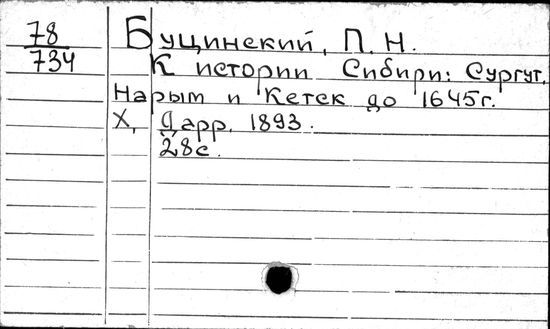 78
734
Буцинский, П. Н.
К истории Сибири: Сургут,
Нарым и Кетск до 1645г.
Х, Дарр, 1893.
28с.